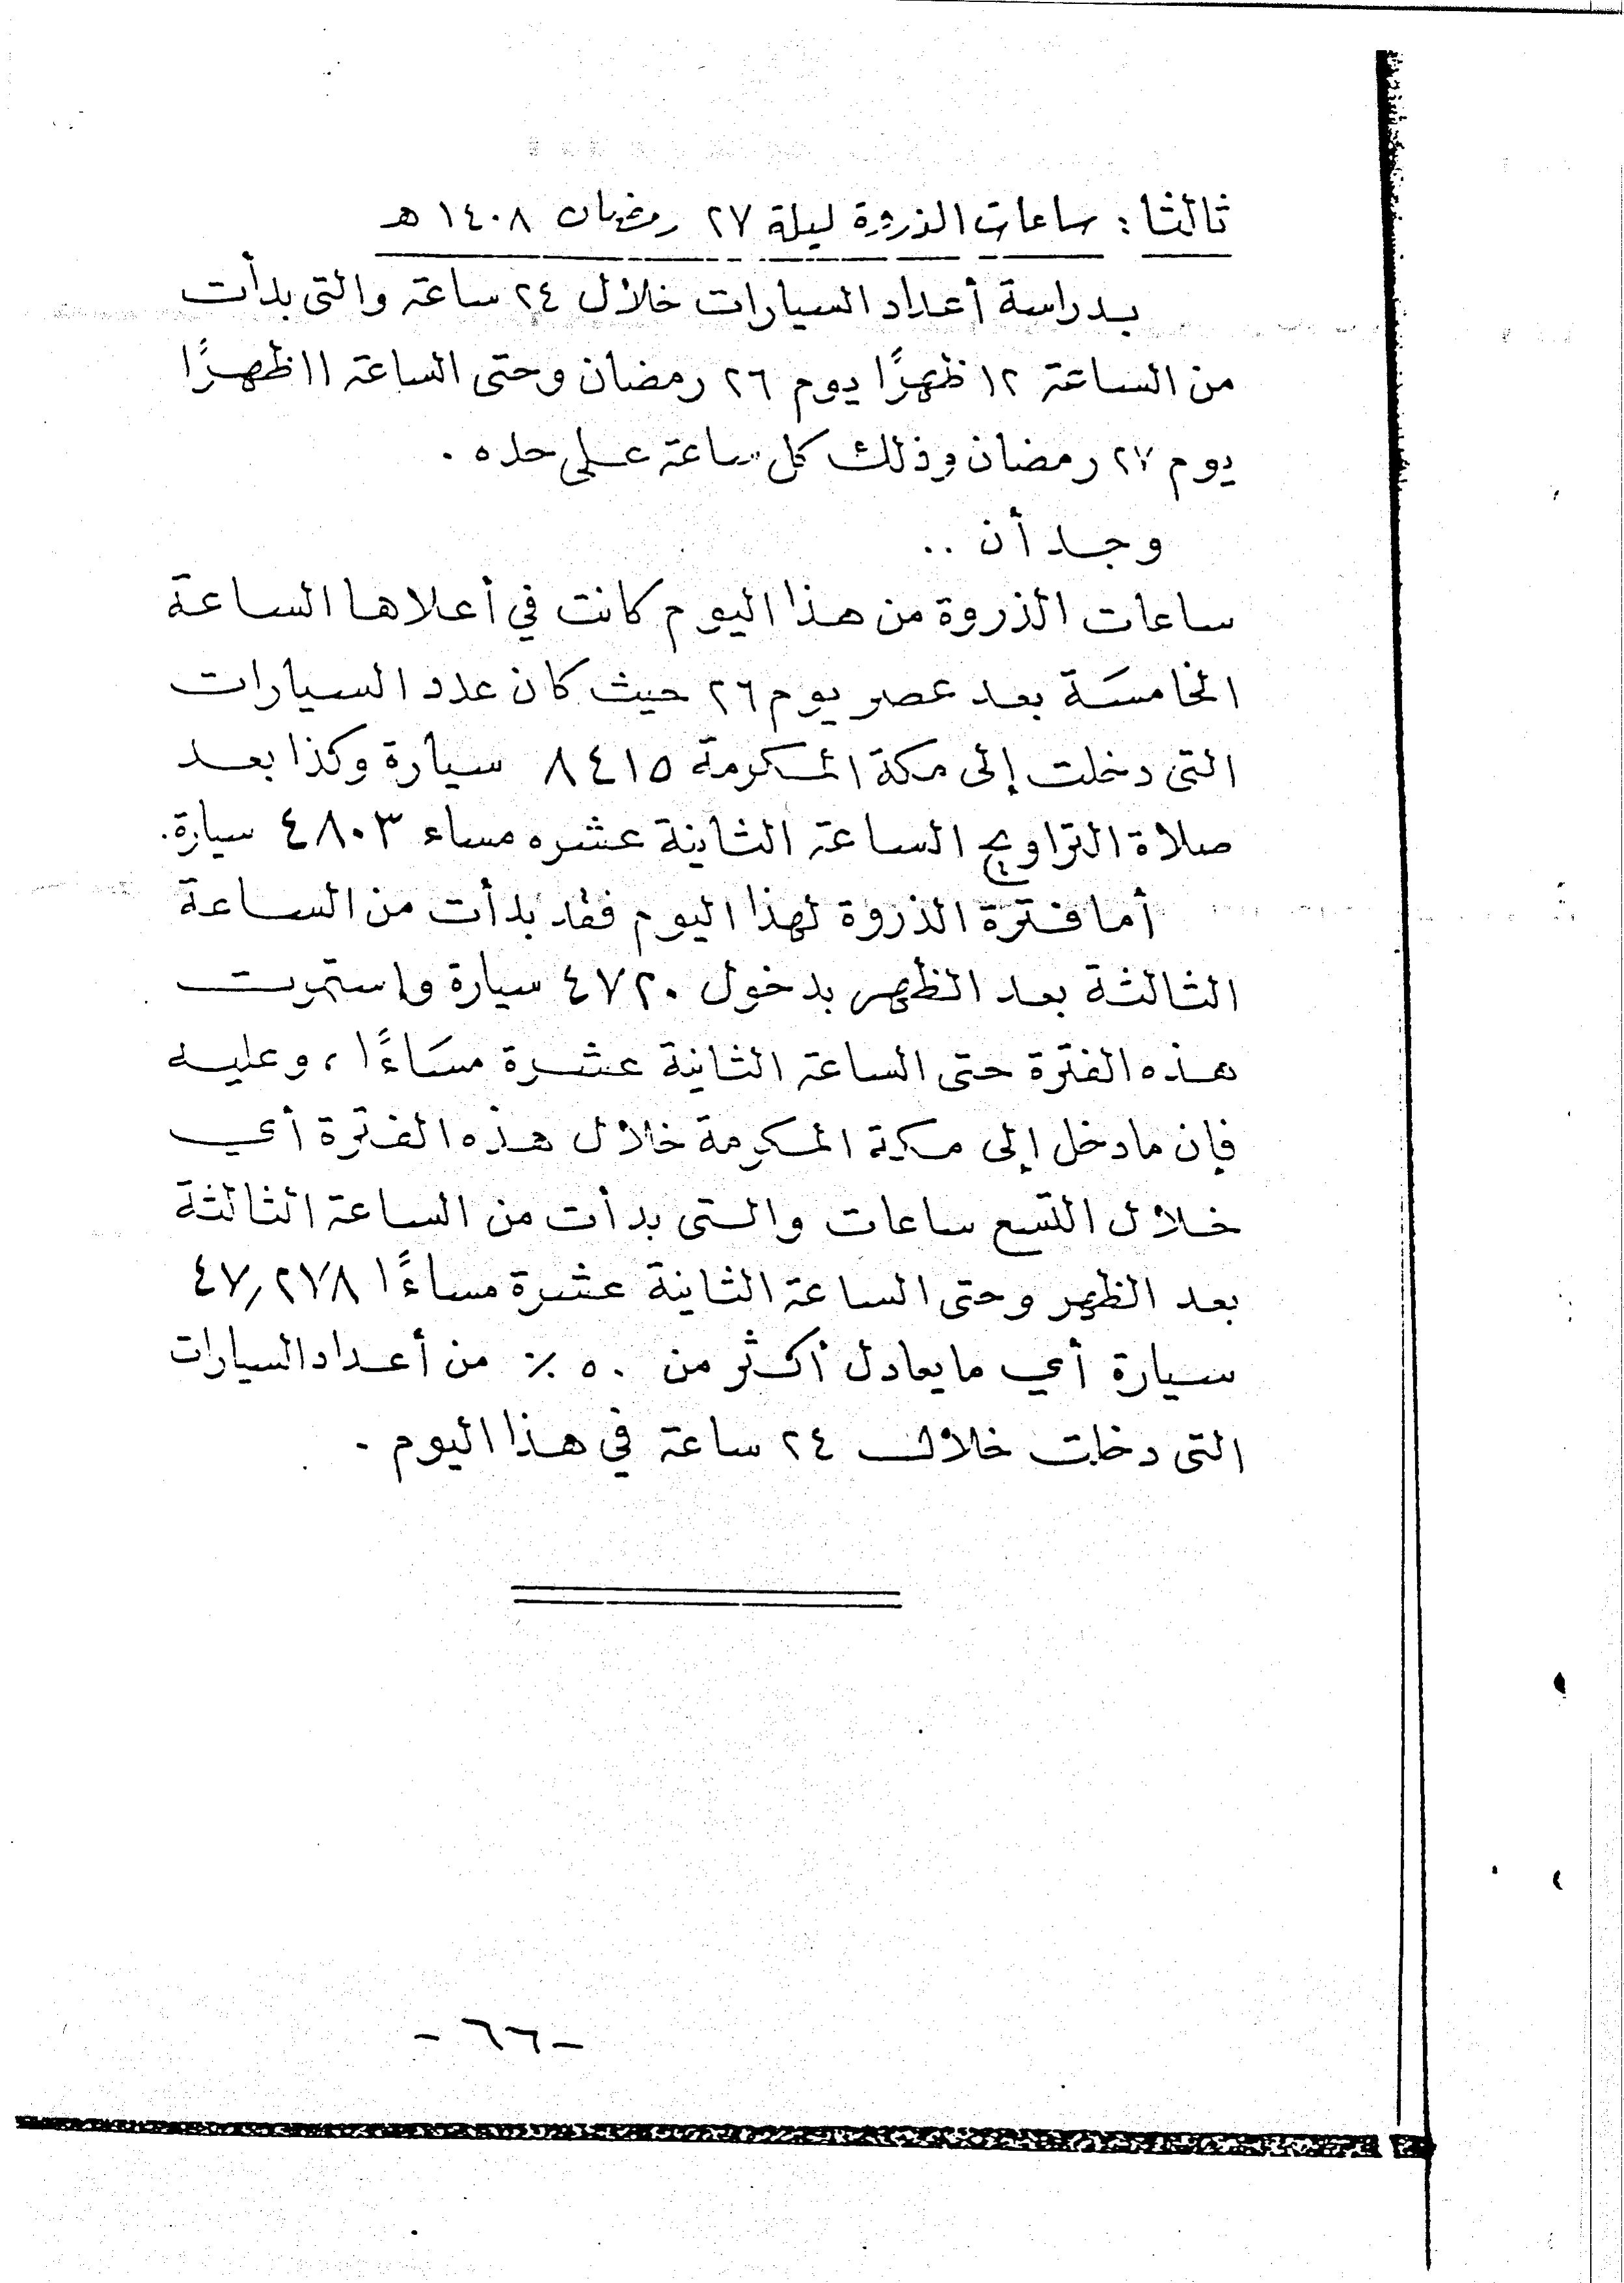 ثالثا : ساعات الذروة ليلة ٢٧ رمضان ١٤٠٨ هـ
بدراسة أعداد السيارات خلال ٢٤ ساعة والتى بدأت
من الساعة ١٢ ظهرًا يوم ٢٦ رمضان وحتى الساعة ١١ ظهرًا
يوم ٢٧ رمضان وذلك كل ساعة على حده .
وجد أن ..
ساعات الذروة من هذا اليوم كانت في أعلاها الساعة
الخامسَة بعد عصر يوم ٢٦ حيث كان عدد السيارات
التى دخلت إلى مكة المكرمة ٨٤١٥ سيارة وكذا بعد
صلاة التراويح الساعة الثانية عشره مساء ٤٨٠٣ سيارة.
أما فترة الذروة لهذا اليوم فقد بدأت من الساعة
الثالثة بعد الظهر بدخول ٤٧٢٠ سيارة وإستمرت
هذه الفترة حتى الساعة الثانية عشرة مسَاءًا ، وعليه
فإن مادخل إلى مكة المكرمة خلال هذه الفترة أي
خلال التسع ساعات والتى بدأت من الساعة الثالثة
بعد الظهر وحتى الساعة الثانية عشرة مساءًا ٤٧,٢٧٨
سيارة أي مايعادل أكثر من ٥٠ ٪ من أعداد السيارات
التى دخلت خلال ٢٤ ساعة في هذا اليوم .
- ٦٦ -